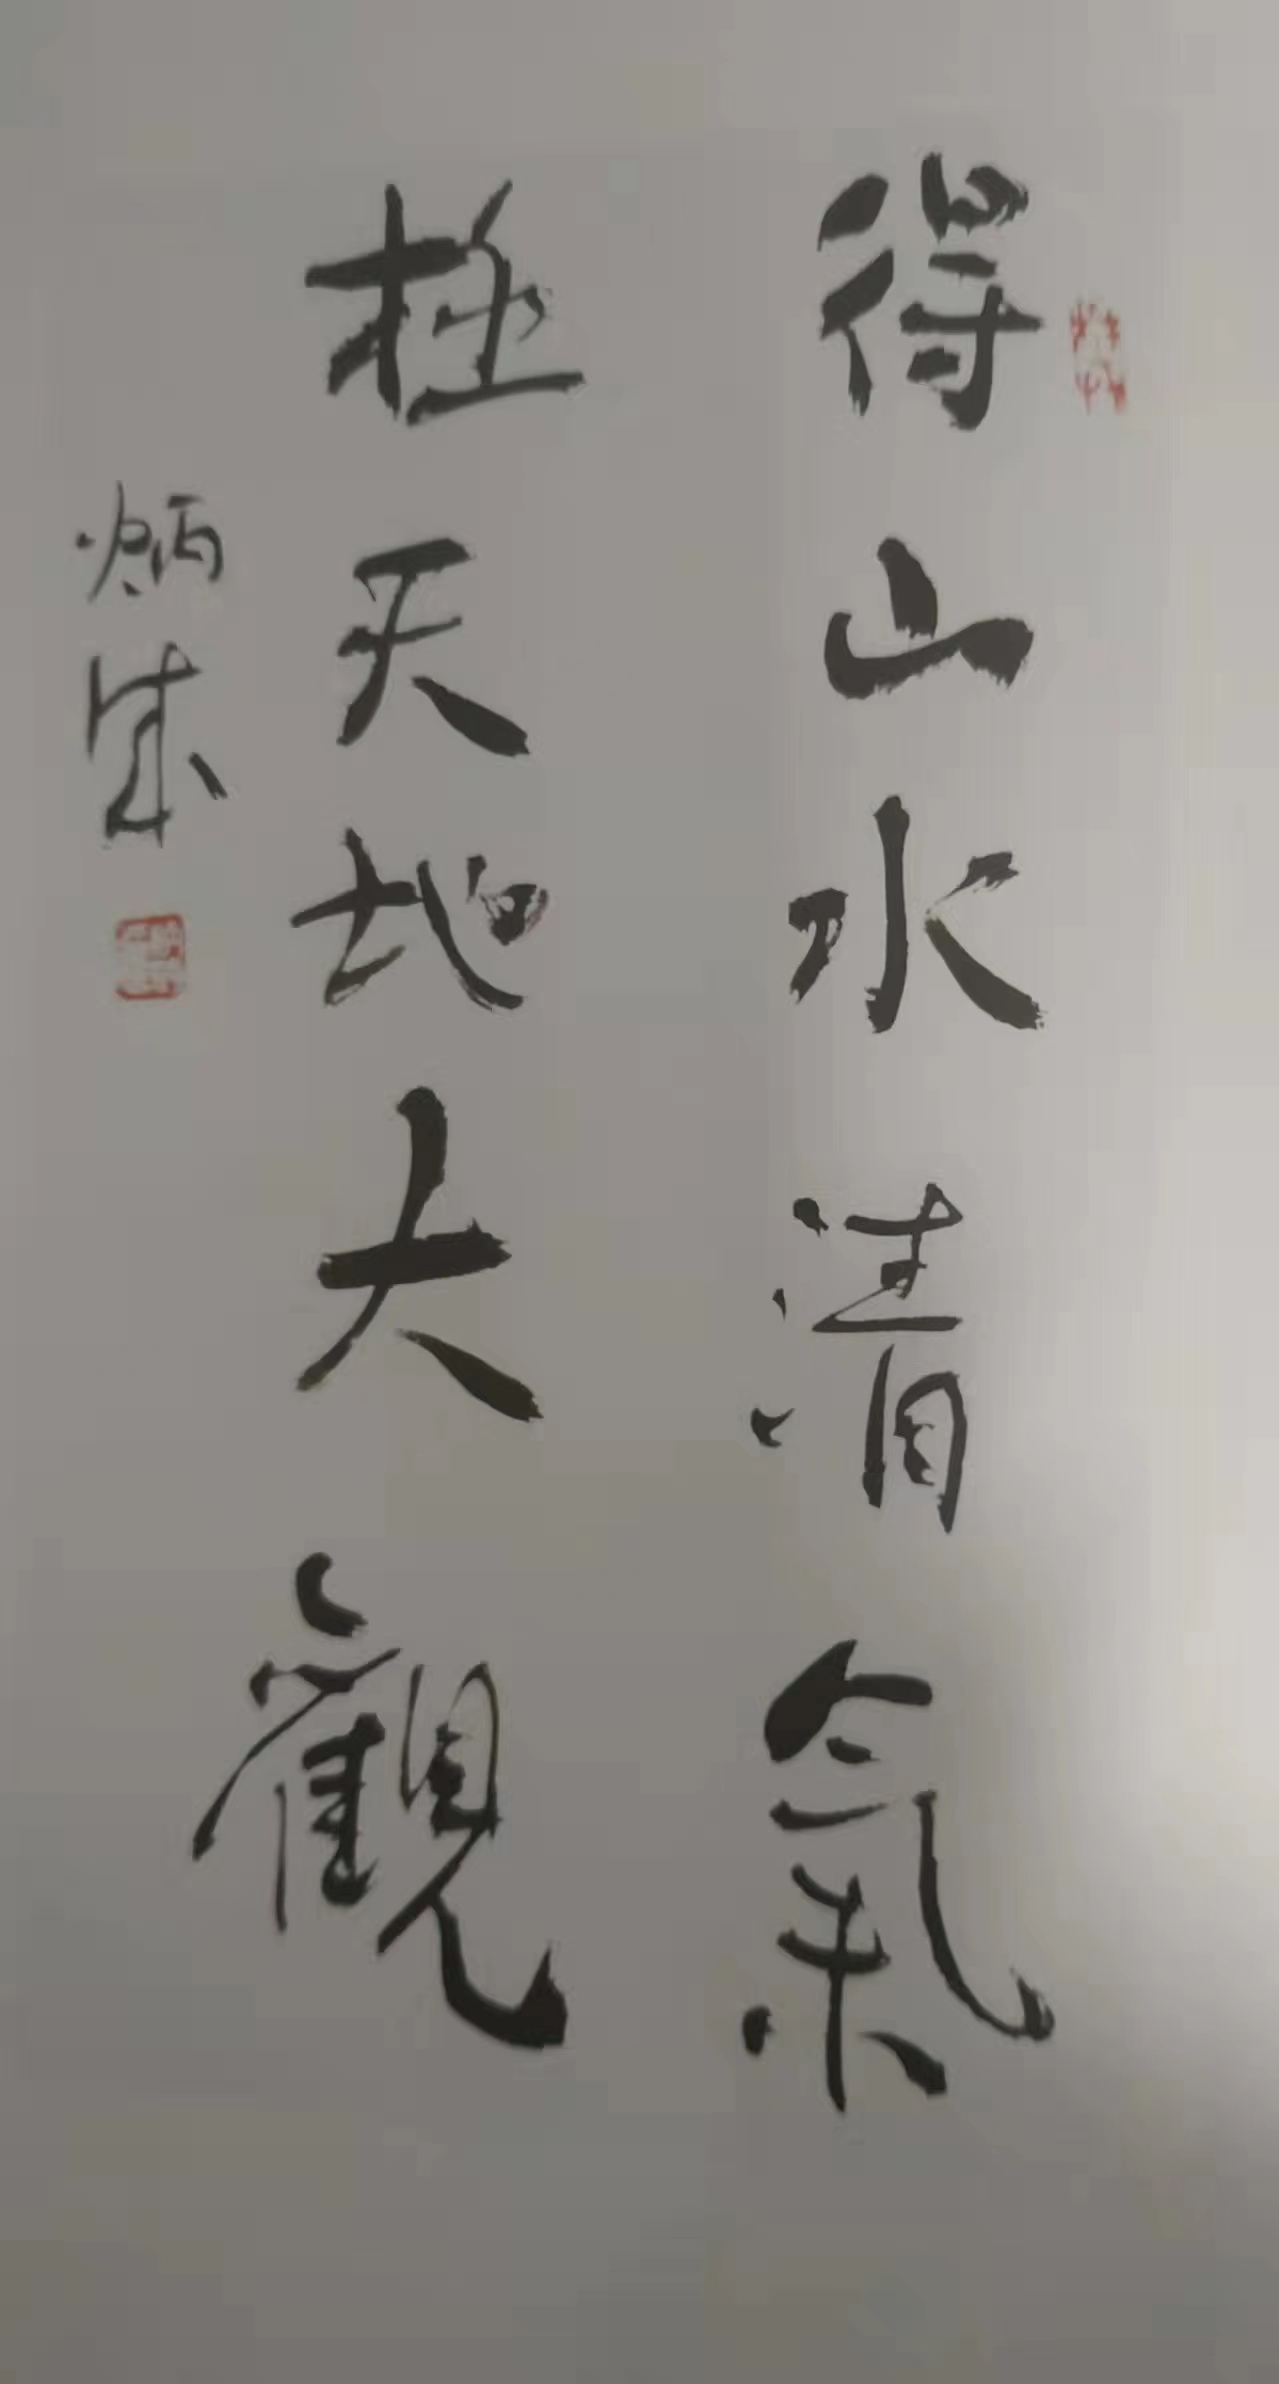 得山水清氣
極天地大觀
炳成